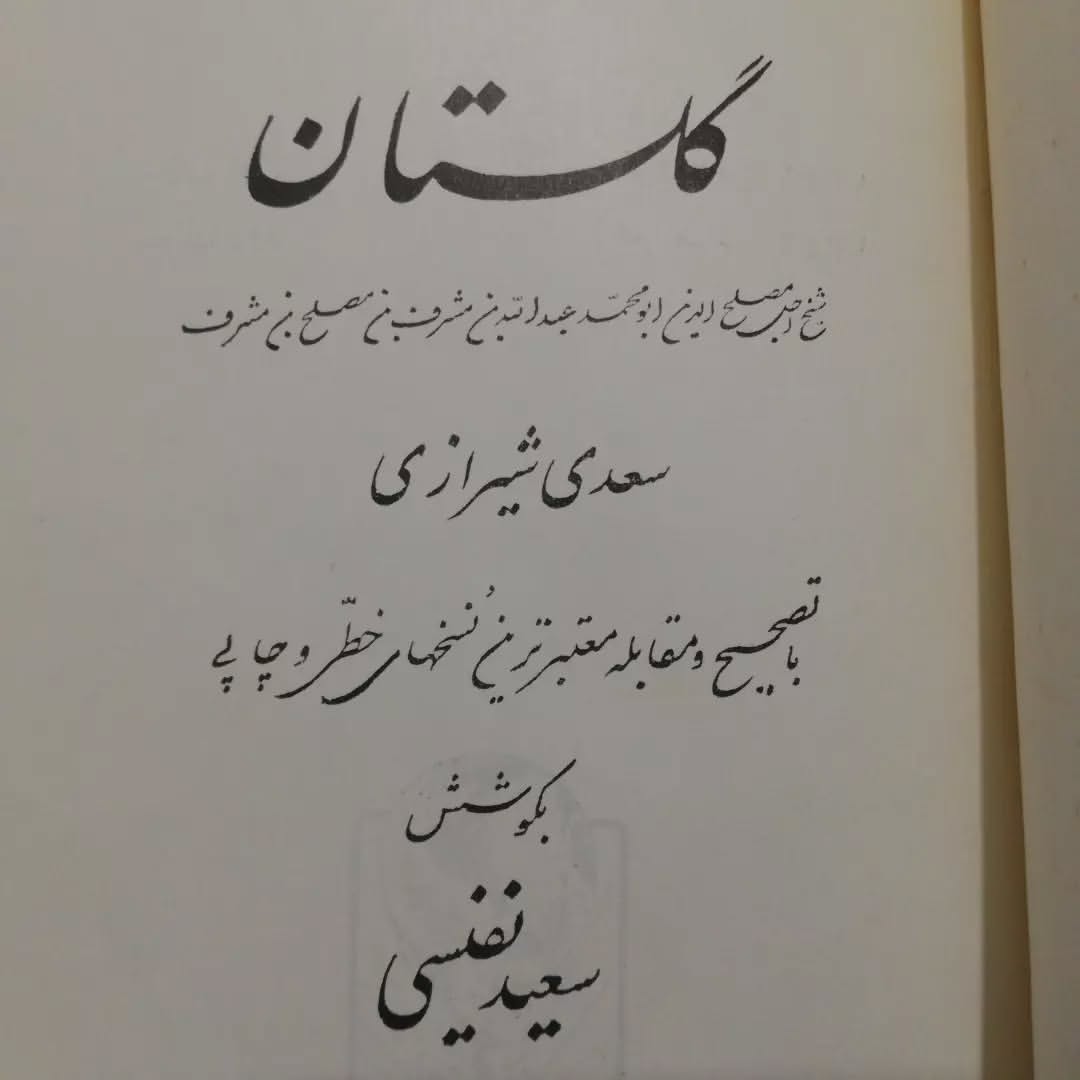 گلستان
شیخ اجل مصلح الدین ابو محمّد عبدالله بن مشرف بن مصلح بن مشرف
سعدی شیرازی
با تصحیح و مقابله معتبرترین نُسخهای خطّی و چاپی
بکوشش
سعید نفیسی